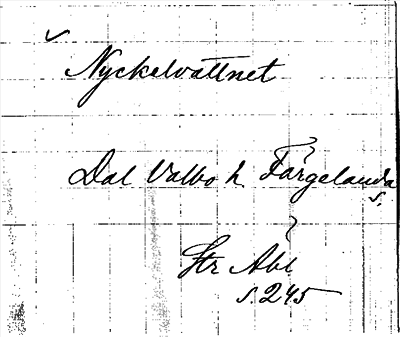 Nyckelvattnet
Dal Valbo h Färgelanda
s.
Str Abl
s. 245